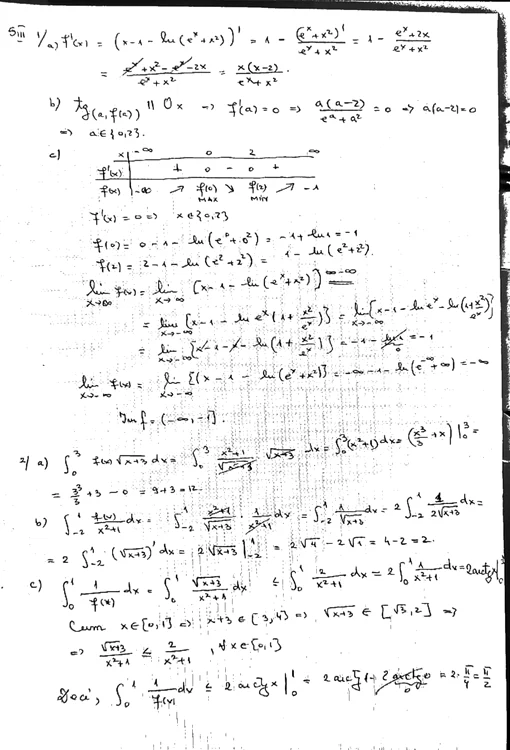 SIII 1/a) f'(x) = (x-1-ln(eˣ+x²))' = 1 - (eˣ+x²)'/(eˣ+x²) = 1 - (eˣ+2x)/(eˣ+x²)
= (eˣ+x²-eˣ-2x)/(eˣ+x²) = x(x-2)/(eˣ+x²).
b) tg(a, f(a)) || Ox → f'(a) = 0 => a(a-2)/(eᵃ+a²) = 0 => a(a-2)=0
=> a∈{0,2}.
c) x | -∞ 0 2 ∞
f'(x) + 0 - 0 +
f(x) -∞ ↗ f(0) ↘ f(2) ↗ -1
MAX MIN
f'(x) = 0 => x∈{0,2}
f(0) = 0-1-ln(e⁰+0²) = -1+ln1 = -1
f(2) = 2-1-ln(e²+2²) = 1-ln(e²+2²).
lim x→∞ f(x) = lim x→∞ [x-1-ln(eˣ+x²)] ∞-∞
= lim x→-∞ {x-1-ln eˣ(1+x²/eˣ)} = lim x→-∞ {x-1-ln eˣ-ln(1+x²/eˣ)}
= lim x→-∞ {x-1-x-ln(1+x²/eˣ)} = -1-ln1 = -1
0
lim x→-∞ f(x) = lim x→-∞ {(x-1-ln(eˣ+x²)} = -∞-1-ln(e^-∞+∞) = -∞
Im f = (-∞, -1].
2/ a) ∫₀³ f(x)√(x+3) dx = ∫₀³ (x²+1)/√(x+3) · √(x+3) dx = ∫₀³(x²+1)dx = (x³/3+x)|₀³ =
= 3³/3+3-0 = 9+3 = 12.
b) ∫₋₂¹ f(x)/(x²+1) dx = ∫₋₂¹ (x²+1)/√(x+3) · 1/(x²+1) dx = ∫₋₂¹ 1/√(x+3) dx = 2∫₋₂¹ 1/(2√(x+3)) dx =
= 2∫₋₂¹ (√(x+3))' dx = 2√(x+3)|₋₂¹ = 2√4-2√1 = 4-2 = 2.
c) ∫₀¹ 1/f(x) dx = ∫₀¹ √(x+3)/(x²+1) dx ≤ ∫₀¹ 2/(x²+1) dx = 2∫₀¹ 1/(x²+1) dx = 2arctgx|₀
Cum x∈[0,1] => x+3∈[3,4] => √(x+3) ∈ [√3,2] =>
=> √(x+3)/(x²+1) ≤ 2/(x²+1), ∀x∈[0,1]
Deci, ∫₀¹ 1/f(x) dx ≤ 2arctg x|₀¹ = 2arctg1-2arctg0 = 2·π/4 = π/2
0